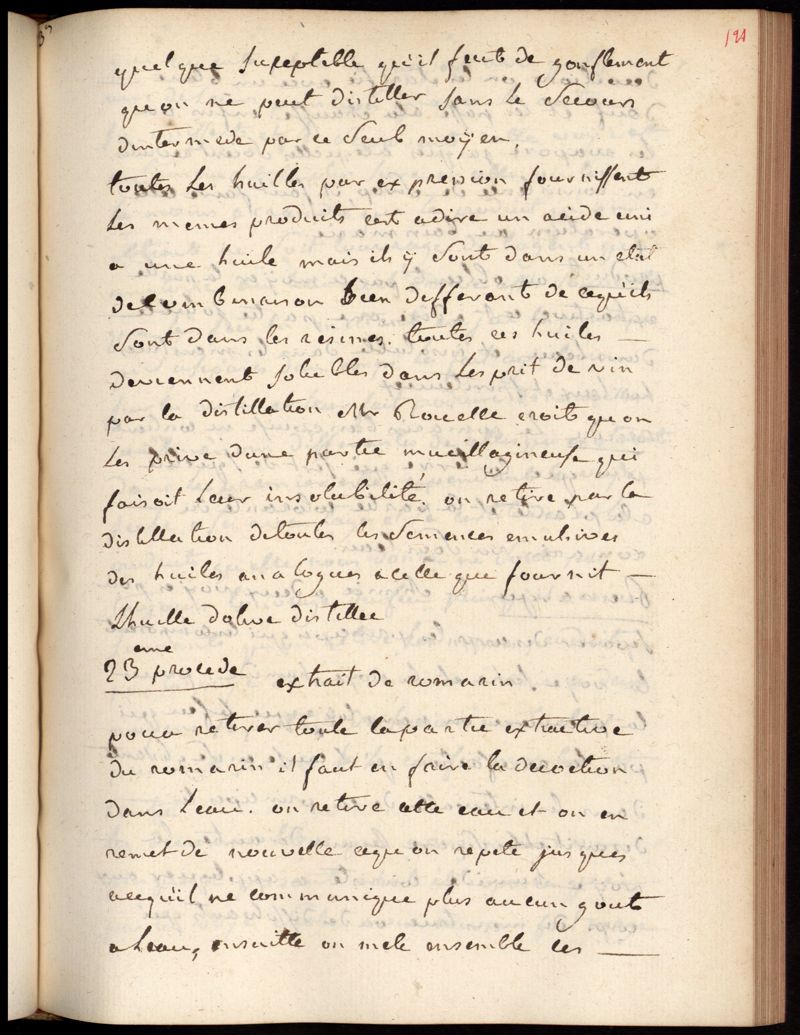 121
quelque suseptible qu'il feut de gonflement
quon ne peut distiller sans le Secours
dintermede par ce Seul moÿen,
toutes les huilles par expression fournissent
les memes produits cest adire un acide uni
a une huile mais ils ÿ Sont dans un etat
de combinaison bien differant de cequ'ils
Sont dans les resines. toutes ces huiles —
deviennent solubles dans lesprit de vin
par la distillation Mr Rouelle croit quon
les prive dune partie mucillagineuse qui
faisoit leur insolubilité. on retire par la
distillation de toutes les Semences emulsives
des huiles analogues a celle que fournit —
Lhuille dolive distillee
23eme procede extrait de romarin
pour retirer toute la partie extractive
du romarin il faut en faire la decoction
dans leau. on retire cette eau et on en
remet de nouvelle ceque on repete jusques
acequ'il ne communique plus aucun gout
a leau, ensuitte on mele ensemble ces —